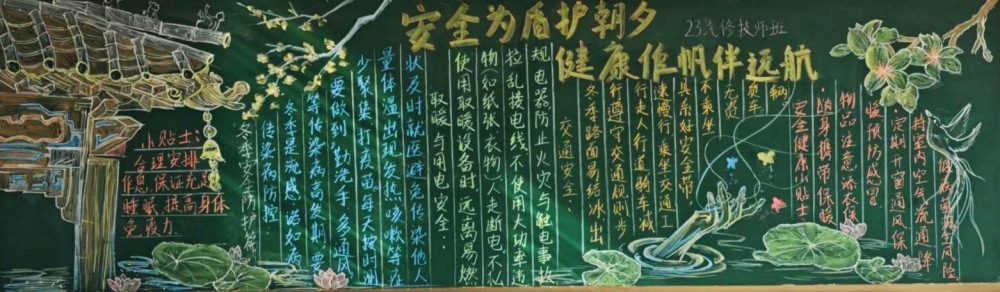 安全为盾护朝夕
健康作帆伴远航
23汽修技师班
小贴士:
合理安排
作息,保证充足
睡眠,提高身体
免疫力
冬季安全防护
传染病防控:
冬季是流感、诺如病
等传染病高发期,要
要做到:勤洗手、多通
少聚集、打疫苗,每天按时测
量体温,出现发热、咳嗽等症
状及时就医,避免传染他人
取暖与用电安全:
使用取暖设备时,远离易燃
物(如纸张、衣物),人走断电,不私
拉乱接电线,不使用大功率违
规电器,防止火灾与触电事故
交通安全:
冬季路面易结冰,出
行遵守交通规则,步
行走人行道,骑车减
速慢行,乘坐交通工
具系好安全带,
不乘坐
安全健康小贴士
随身携带保暖
物品,注意添衣保
暖,预防感冒
定期开窗通风,保
持室内空气流通,降
低病菌滋生风险